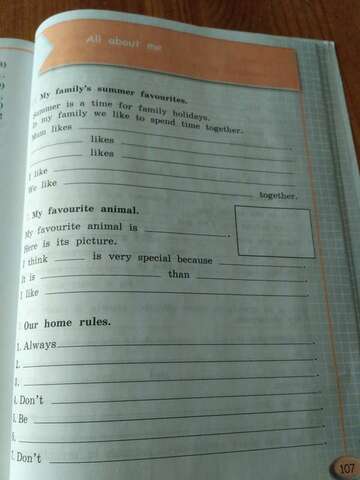 All about me
My family's summer favourites.
Summer is a time for family holidays.
In my family we like to spend time together.
Mum likes
likes
likes
I like
We like together.
My favourite animal.
My favourite animal is .
Here is its picture.
I think is very special because .
It is than .
I like
Our home rules.
1. Always .
2. .
3. .
4. Don't .
5. Be .
6. .
7. Don't .
107